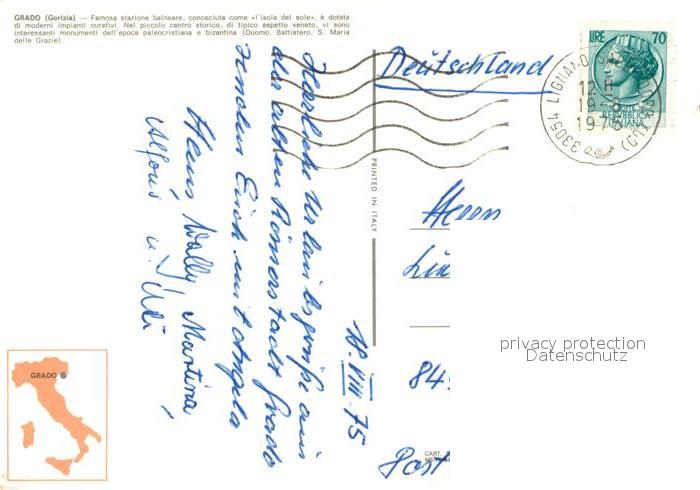 GRADO (Gorizia) — Famosa stazione balneare, conosciuta come «l'isola del sole», è dotata
di moderni impianti curativi. Nel piccolo centro storico, di tipico aspetto veneto, vi sono
interessanti monumenti dell'epoca paleocristiana e bizantina (Duomo, Battistero, S. Maria
delle Grazie).
Deutschland
LIRE 70
REPVBBLICA
ITALIANA
33054 LIGNANO
12
19-8
1975
(UD)
18.VIII.75
Herzliche Urlaubsgrüße aus
der alten Römerstadt Grado
senden Euch mit Angela
Hans, Wally, Martina,
Alfons u. Uli
PRINTED IN ITALY
Herrn
84
Post
CART.
GRADO
privacy protection
Datenschutz